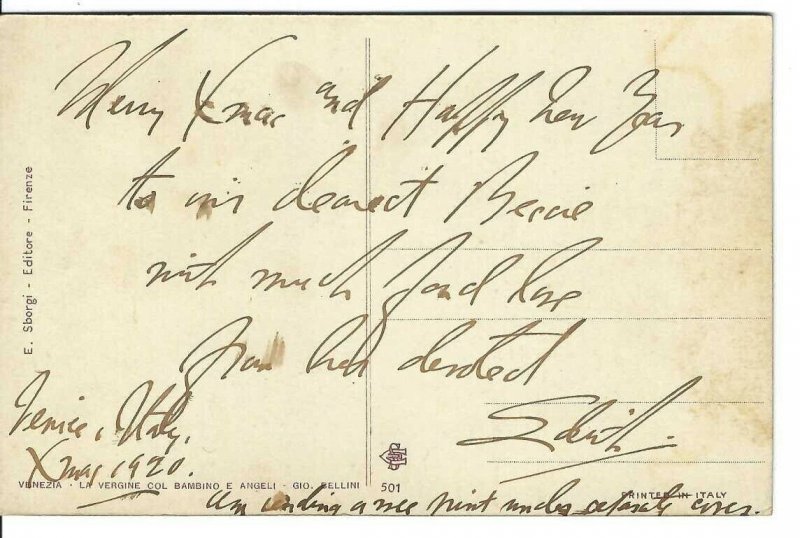 Merry Xmas and Happy New Year
to my dearest Bessie
with much fond love
from her devoted
Edith.
Venice, Italy,
Xmas 1920.
Am sending a wee print under separate cover.
E. Sborgi - Editore - Firenze
VENEZIA - LA VERGINE COL BAMBINO E ANGELI - GIO. BELLINI
501
PRINTED IN ITALY